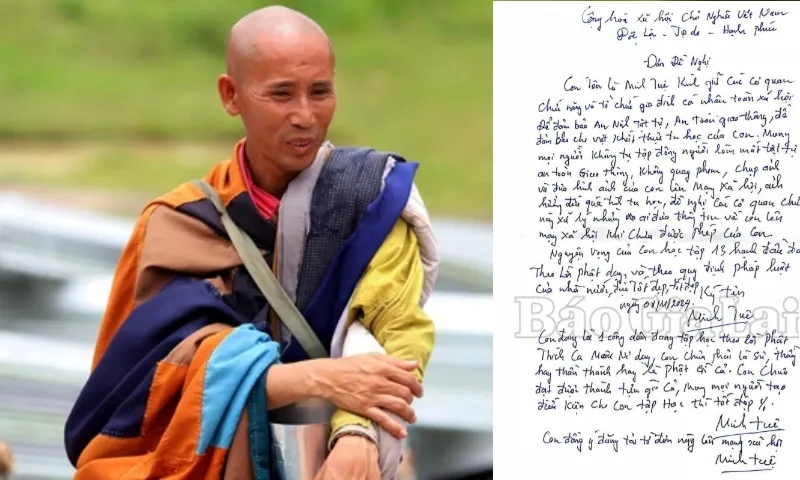 Cộng hoà xã hội Chủ Nghĩa Việt Nam
Độc Lập - Tự do - Hạnh phúc
Đơn Đề Nghị
Con Tên Là Minh Tuệ Kính gửi Các Cơ quan
chức năng và tổ chức gia đình cá nhân toàn xã hội
Để đảm bảo An Ninh Trật tự, An Toàn giao thông, để
đảm bảo cho việc Khất thực tu học của Con. Mong
mọi người Không tụ tập đông người làm mất trật tự
an toàn Giao thông, Không quay phim, chụp ảnh
và đưa hình ảnh của con lên Mạng Xã hội, ảnh
hưởng đến quá trình tu học, đề nghị Các Cơ quan chức
năng xử lý những đưa thông tin về con lên
mạng xã hội Khi Chưa được phép của Con
Nguyện Vọng của Con học tập 13 hạnh đầu đà
Theo lời phật dạy, và theo quy định pháp luật
của nhà nước, tốt đẹp, Ký Tên
ngày 2024
Minh Tuệ
Báo Gia Lai
Con đang là 1 công dân đang tập học theo lời Phật
Thích Ca Mâu Ni dạy, Con Chưa phải là Sư, thầy
hay thần thánh hay là Phật Gì Cả. Con Chưa
đạt được thành tựu gì Cả, Mong mọi người tạo
điều Kiện Cho Con tập Học thì tốt đẹp
Minh Tuệ
Con đồng ý đăng tải tờ đơn này lên mạng xã hội
Minh Tuệ